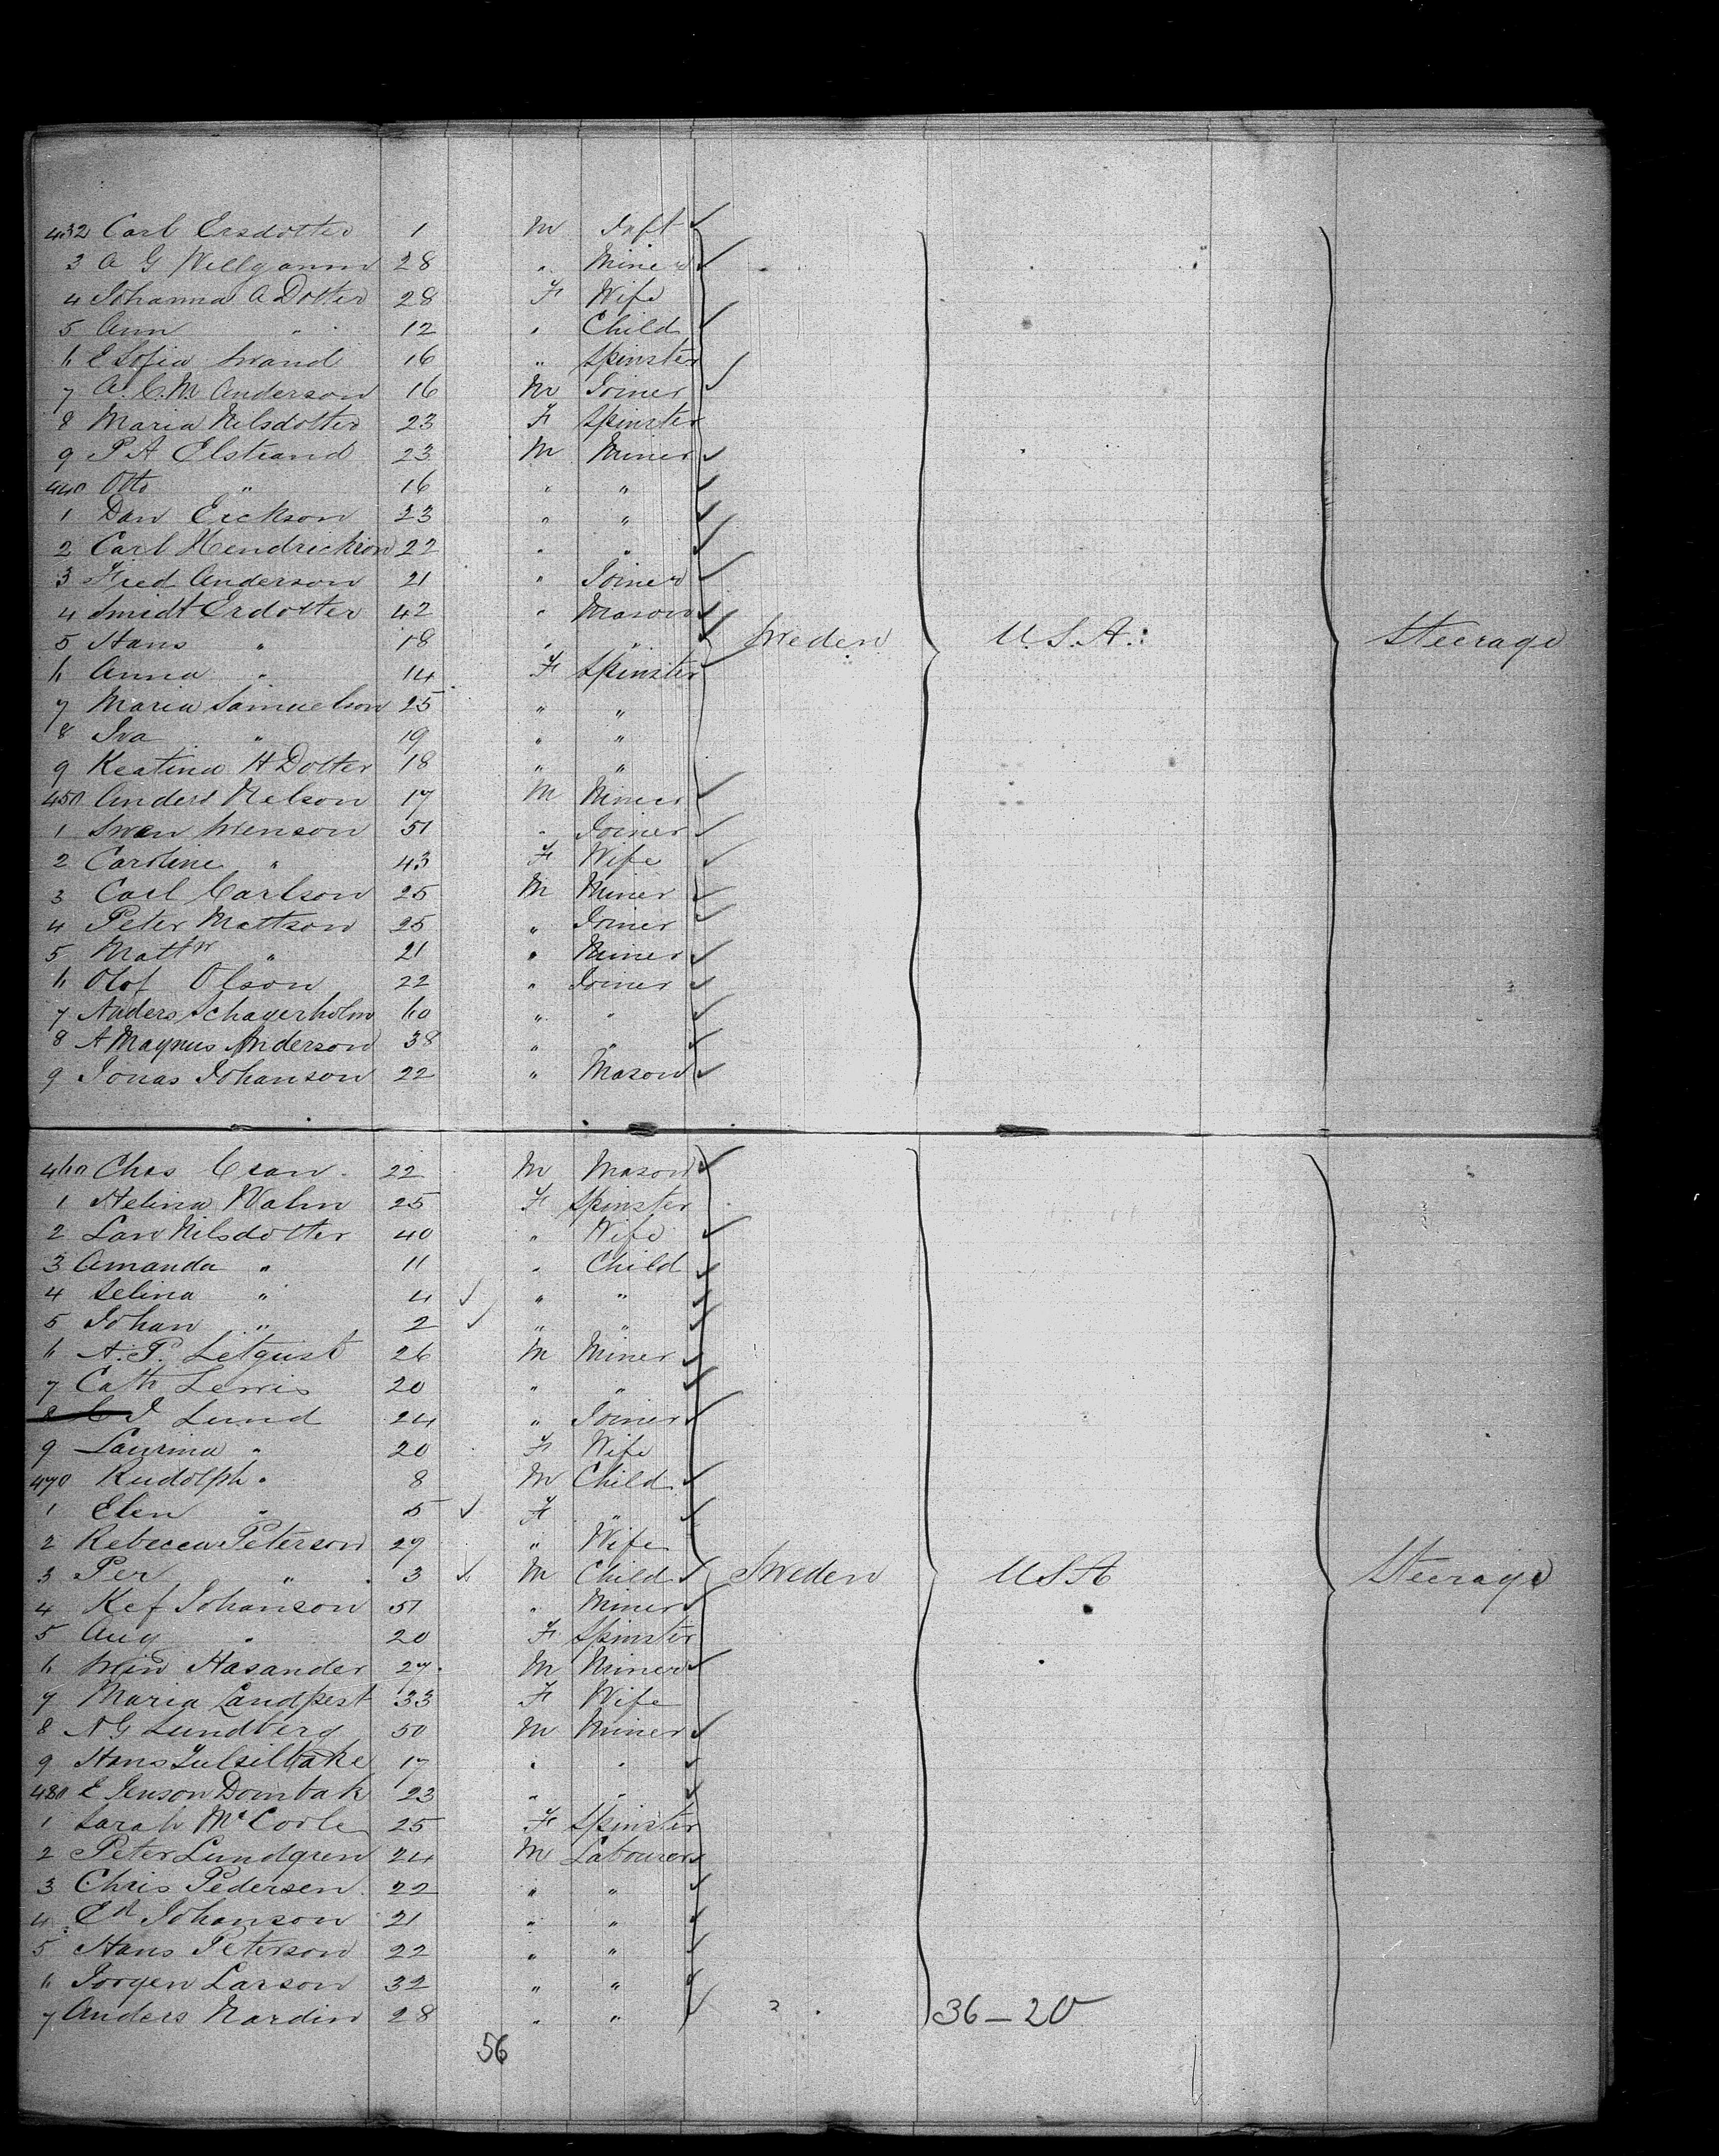 432 Carl Ersdotter 1 M Inft
3 A G Willganm 28 " Miner
4 Johanna A Dotter 28 F Wife
5 Ann " 12 " Child
6 E Sofia Swand 16 " Spinster
7 A. C. M. Anderson 16 M Joiner
8 Maria Nilsdotter 23 F Spinster
9 P A Elstrand 23 M Miner
440 Otto " 16 " "
1 Dan Erickson 23 " "
2 Carl Hendrickson 22 " "
3 Fred Anderson 21 " Joiner
4 Smidt Erdotter 42 " Mason
5 Hans " 18 " " Sweden U.S.A. Steerage
6 Anna " 14 F Spinster
7 Maria Samuelson 25 " "
8 Iva " 19 " "
9 Keatina H Dotter 18 " "
450 Anders Nelson 17 M Miner
1 Swen Swenson 51 " Joiner
2 Caroline " 43 F Wife
3 Carl Carlson 25 M Miner
4 Peter Mattson 25 " Joiner
5 Mattw " 21 " Miner
6 Olof Olson 22 " Joiner
7 Anders Schagerholm 60 " "
8 A Magnus Anderson 38 " "
9 Jonas Johanson 22 " Mason
460 Chas Cran 22 M Mason
1 Helina Walm 25 F Spinster
2 Lar Nilsdotter 40 " Wife
3 Amanda " 11 " Child
4 Selina " 4 " "
5 Johan " 2 " "
6 A. P. Letqust 26 M Miner
7 Cath Lewis 20 " "
8 C J Lund 24 " Joiner
9 Laurina " 20 F Wife
470 Rudolph " 8 M Child
1 Elen " 5 F "
2 Rebecca Peterson 29 " Wife
3 Per " 3 M Child Sweden USA Steerage
4 Kef Johanson 51 " Miner
5 Aug " 20 F Spinster
6 Hasander 27 M Miner
7 Maria Landpest 33 F Wife
8 A G Lundberg 50 M Miner
9 Hans 17 " "
480 E Jenson Dombak 23 " "
1 Sarah McCorle 25 F Spinster
2 Peter Lundgren 24 M Labourer
3 Chris Pedersen 22 " "
4 Ed Johanson 21 " "
5 Hans Peterson 22 " "
6 Jorgen Larson 32 " "
7 Anders Nardin 28 " " 36 - 20
56